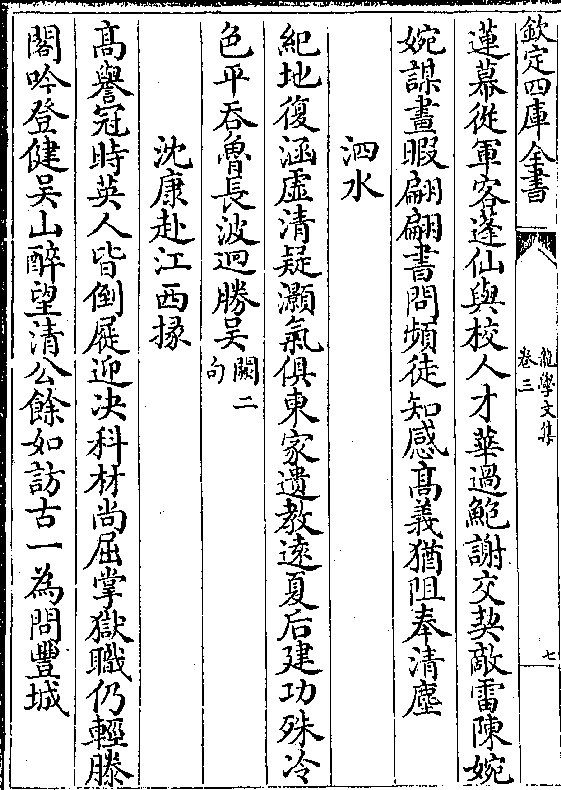 欽定四庫全書
龍學文集
卷三
七
蓮幕從軍容蓬仙與校人才華過鮑謝交契敵雷陳婉
婉謀畫暇翩翩書問頻徒知感髙義猶阻奉清塵
泗水
紀地復涵虚清疑灝氣俱東家遺教逺夏后建功殊冷
色平吞魯長波迥勝吳闕二句
沈康赴江西掾
髙譽冠時英人皆倒屣迎决科材尚屈掌獄職仍輕滕
閣吟登健吳山醉望清公餘如訪古一為問豐城